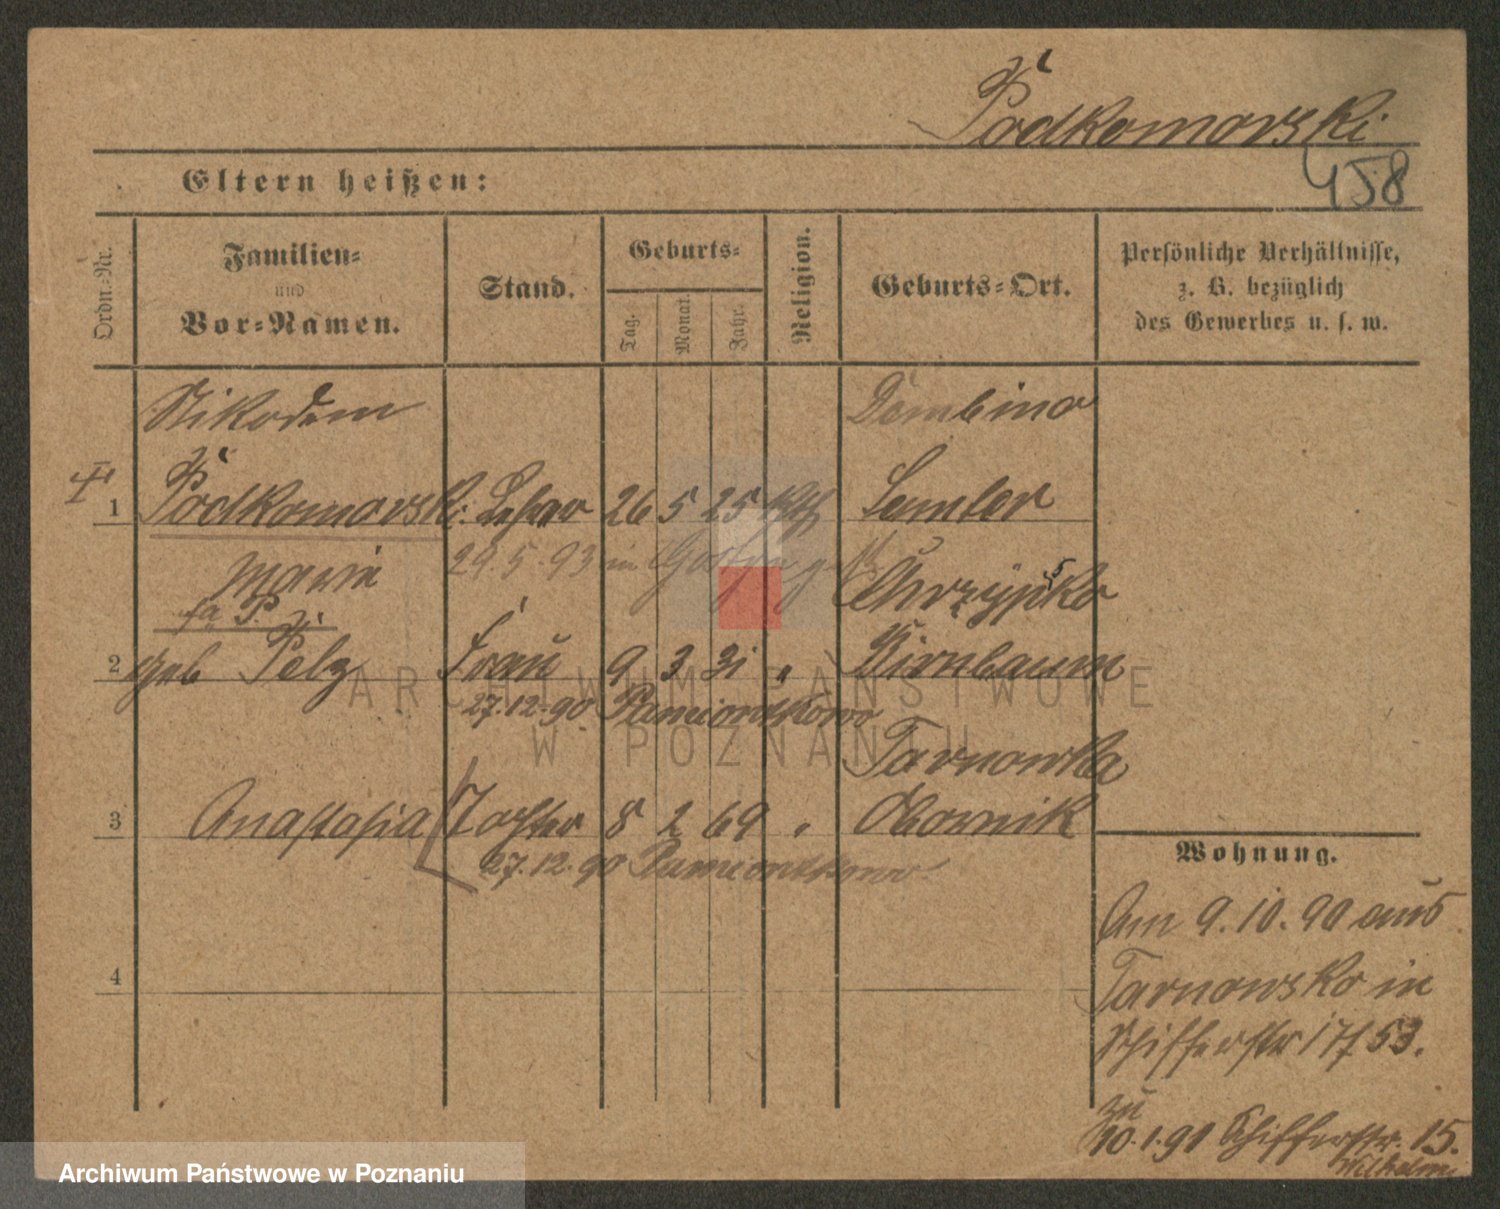 Podkomorski
458
Eltern heißen:
Ordn.-Nr.
Familien-
und
Vor-Namen.
Stand.
Geburts-
Tag.
Monat.
Jahr.
Religion.
Geburts-Ort.
Persönliche Verhältnisse,
z. B. bezüglich
des Gewerbes u. s. w.
Nikodem
Dembino
1 Podkomorski Lehrer 26 5 25 kth Samter
29.5.93 in Gostyn
Marie
Chrzypsko
2 geb Pelz Frau 9 3 31 " Birnbaum
27.12.90 Pamiontkowo
Tarnowko
3 Anastasia Tochter 8 2 69 " Obornik
27.12.90 Pamiontkowo
4
Wohnung.
Am 9.10.90 aus
Tarnowsko in
Schifferstr 17 53.
zu
10.1.91 Schifferstr. 15.
Wilhelm
ARCHIWUM PAŃSTWOWE
W POZNANIU
Archiwum Państwowe w Poznaniu